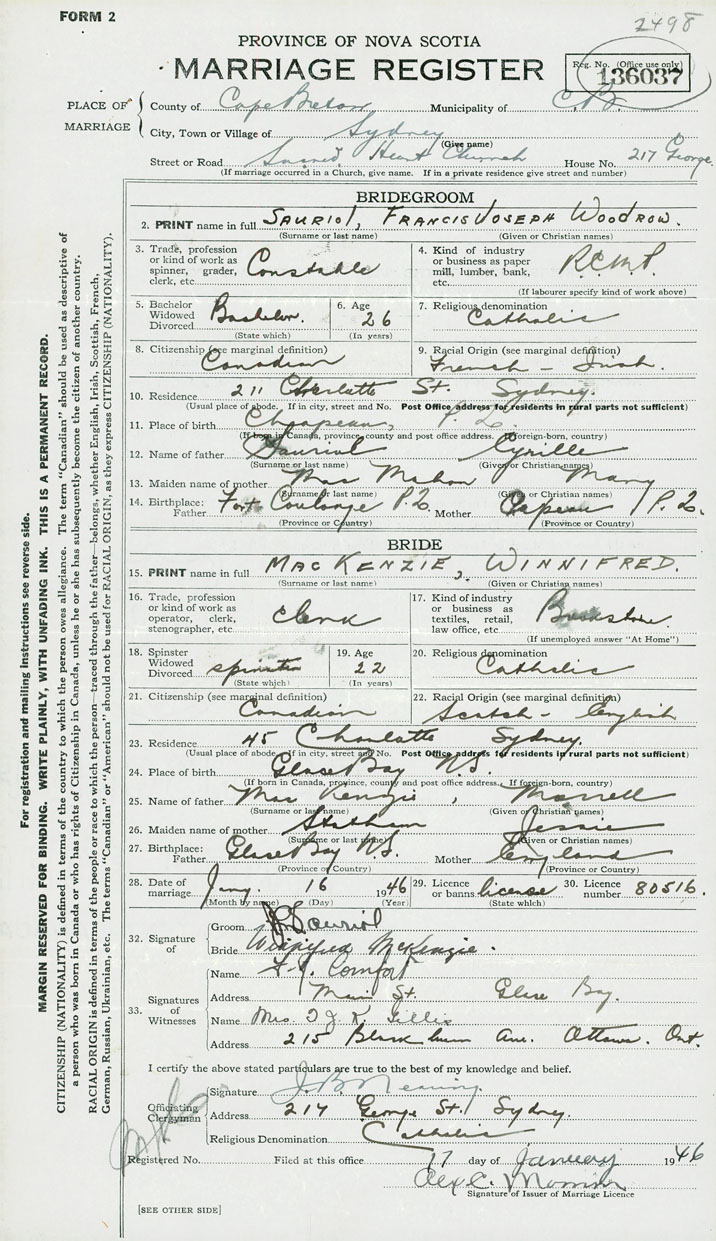 FORM 2
2498
PROVINCE OF NOVA SCOTIA
MARRIAGE REGISTER
Reg. No. (Office use only)
136037
PLACE OF MARRIAGE
County of Cape Breton Municipality of C.B.
City, Town or Village of Sydney
(Give name)
Street or Road Sacred Heart Church House No. 217 George
(If marriage occurred in a Church, give name. If in a private residence give street and number)
BRIDEGROOM
2. PRINT name in full SAURIOL, FRANCIS JOSEPH WOODROW.
(Surname or last name) (Given or Christian names)
3. Trade, profession or kind of work as spinner, grader, clerk, etc. Constable
4. Kind of industry or business as paper mill, lumber, bank, etc. R.C.M.P.
(If labourer specify kind of work above)
5. Bachelor Widowed Divorced Bachelor.
(State which)
6. Age 26
(In years)
7. Religious denomination Catholic
8. Citizenship (see marginal definition) Canadian
9. Racial Origin (see marginal definition) French - Irish
10. Residence 211 Charlotte St. Sydney.
(Usual place of abode. If in city, street and No. Post Office address for residents in rural parts not sufficient)
11. Place of birth Chapeau, P.Q.
(If born in Canada, province, county and post office address. If foreign-born, country)
12. Name of father Sauriol Cyrille
(Surname or last name) (Given or Christian names)
13. Maiden name of mother Mac Mahon Mary
(Surname or last name) (Given or Christian names)
14. Birthplace: Father Fort Coulonge P.Q. Mother Capeau P.Q.
(Province or Country) (Province or Country)
BRIDE
15. PRINT name in full MACKENZIE, WINNIFRED.
(Surname or last name) (Given or Christian names)
16. Trade, profession or kind of work as operator, clerk, stenographer, etc. Clerk
17. Kind of industry or business as textiles, retail, law office, etc. Bookstore
(If unemployed answer "At Home")
18. Spinster Widowed Divorced spinster
(State which)
19. Age 22
(In years)
20. Religious denomination Catholic
21. Citizenship (see marginal definition) Canadian
22. Racial Origin (see marginal definition) Scotch - English
23. Residence 45 Charlotte Sydney.
(Usual place of abode. If in city, street and No. Post Office address for residents in rural parts not sufficient)
24. Place of birth Glace Bay N.S.
(If born in Canada, province, county and post office address. If foreign-born, country)
25. Name of father Mac Kenzie,
(Surname or last name) (Given or Christian names)
26. Maiden name of mother Statham Jessie
(Surname or last name) (Given or Christian names)
27. Birthplace: Father Glace Bay N.S. Mother England
(Province or Country) (Province or Country)
28. Date of marriage Jany. 16 1946
(Month by name) (Day) (Year)
29. Licence or banns license
(State which)
30. Licence number 80516.
32. Signature of
Groom Sauriol
Bride Winnifred McKenzie.
33. Signatures of Witnesses
Name F.J. Comfort
Address Main St. Glace Bay.
Name Mrs. J. K. Gillis
Address 215 Blackburn Ave. Ottawa. Ont.
I certify the above stated particulars are true to the best of my knowledge and belief.
Officiating Clergyman
Signature J.B.
Address 217 George St. Sydney.
Religious Denomination Catholic
Registered No. Filed at this office 17 day of January 1946
Alex C.
Signature of Issuer of Marriage Licence
[SEE OTHER SIDE]
For registration and mailing instructions see reverse side.
MARGIN RESERVED FOR BINDING. WRITE PLAINLY, WITH UNFADING INK. THIS IS A PERMANENT RECORD.
CITIZENSHIP (NATIONALITY) is defined in terms of the country to which the person owes allegiance. The term "Canadian" should be used as descriptive of
a person who was born in Canada or who has rights of Citizenship in Canada, unless he or she has subsequently become the citizen of another country.
RACIAL ORIGIN is defined in terms of the people or race to which the person—traced through the father—belongs, whether English, Irish, Scottish, French,
German, Russian, Ukrainian, etc. The terms "Canadian" or "American" should not be used for RACIAL ORIGIN, as they express CITIZENSHIP (NATIONALITY).